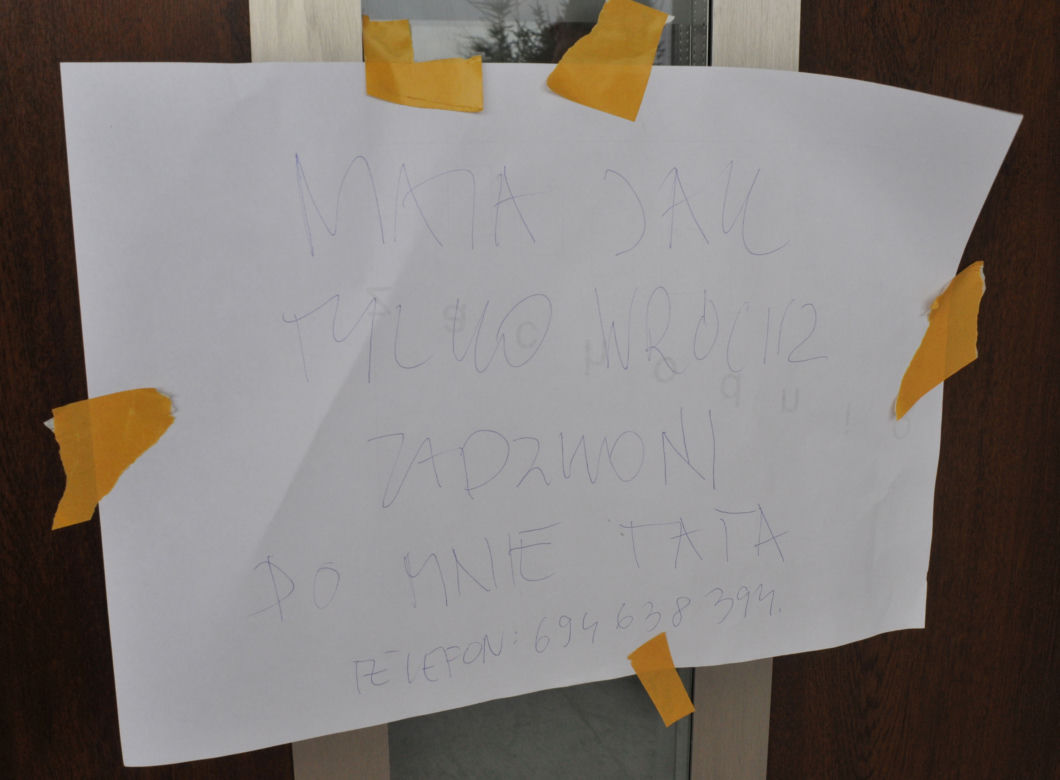 MATA JAK
TYLKO WRÓCISZ
ZADZWOŃ
DO MNIE TATA
TELEFON: 694 638 394.